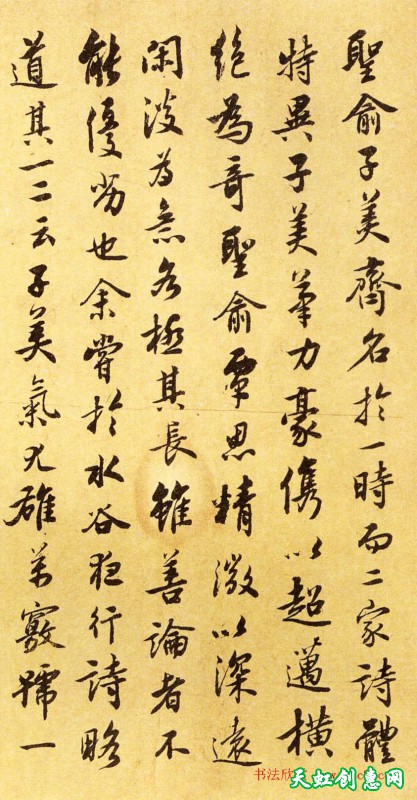 聖俞子美齊名於一時而二家詩體
特異子美筆力豪儁以超邁橫
絶為竒聖俞覃思精微以深遠
閑淡為意各極其長雖善論者不
能優劣也余嘗於水谷夜行詩略
道其一二云子美氣尤雄萬竅號一
书法欣
天虹创意网